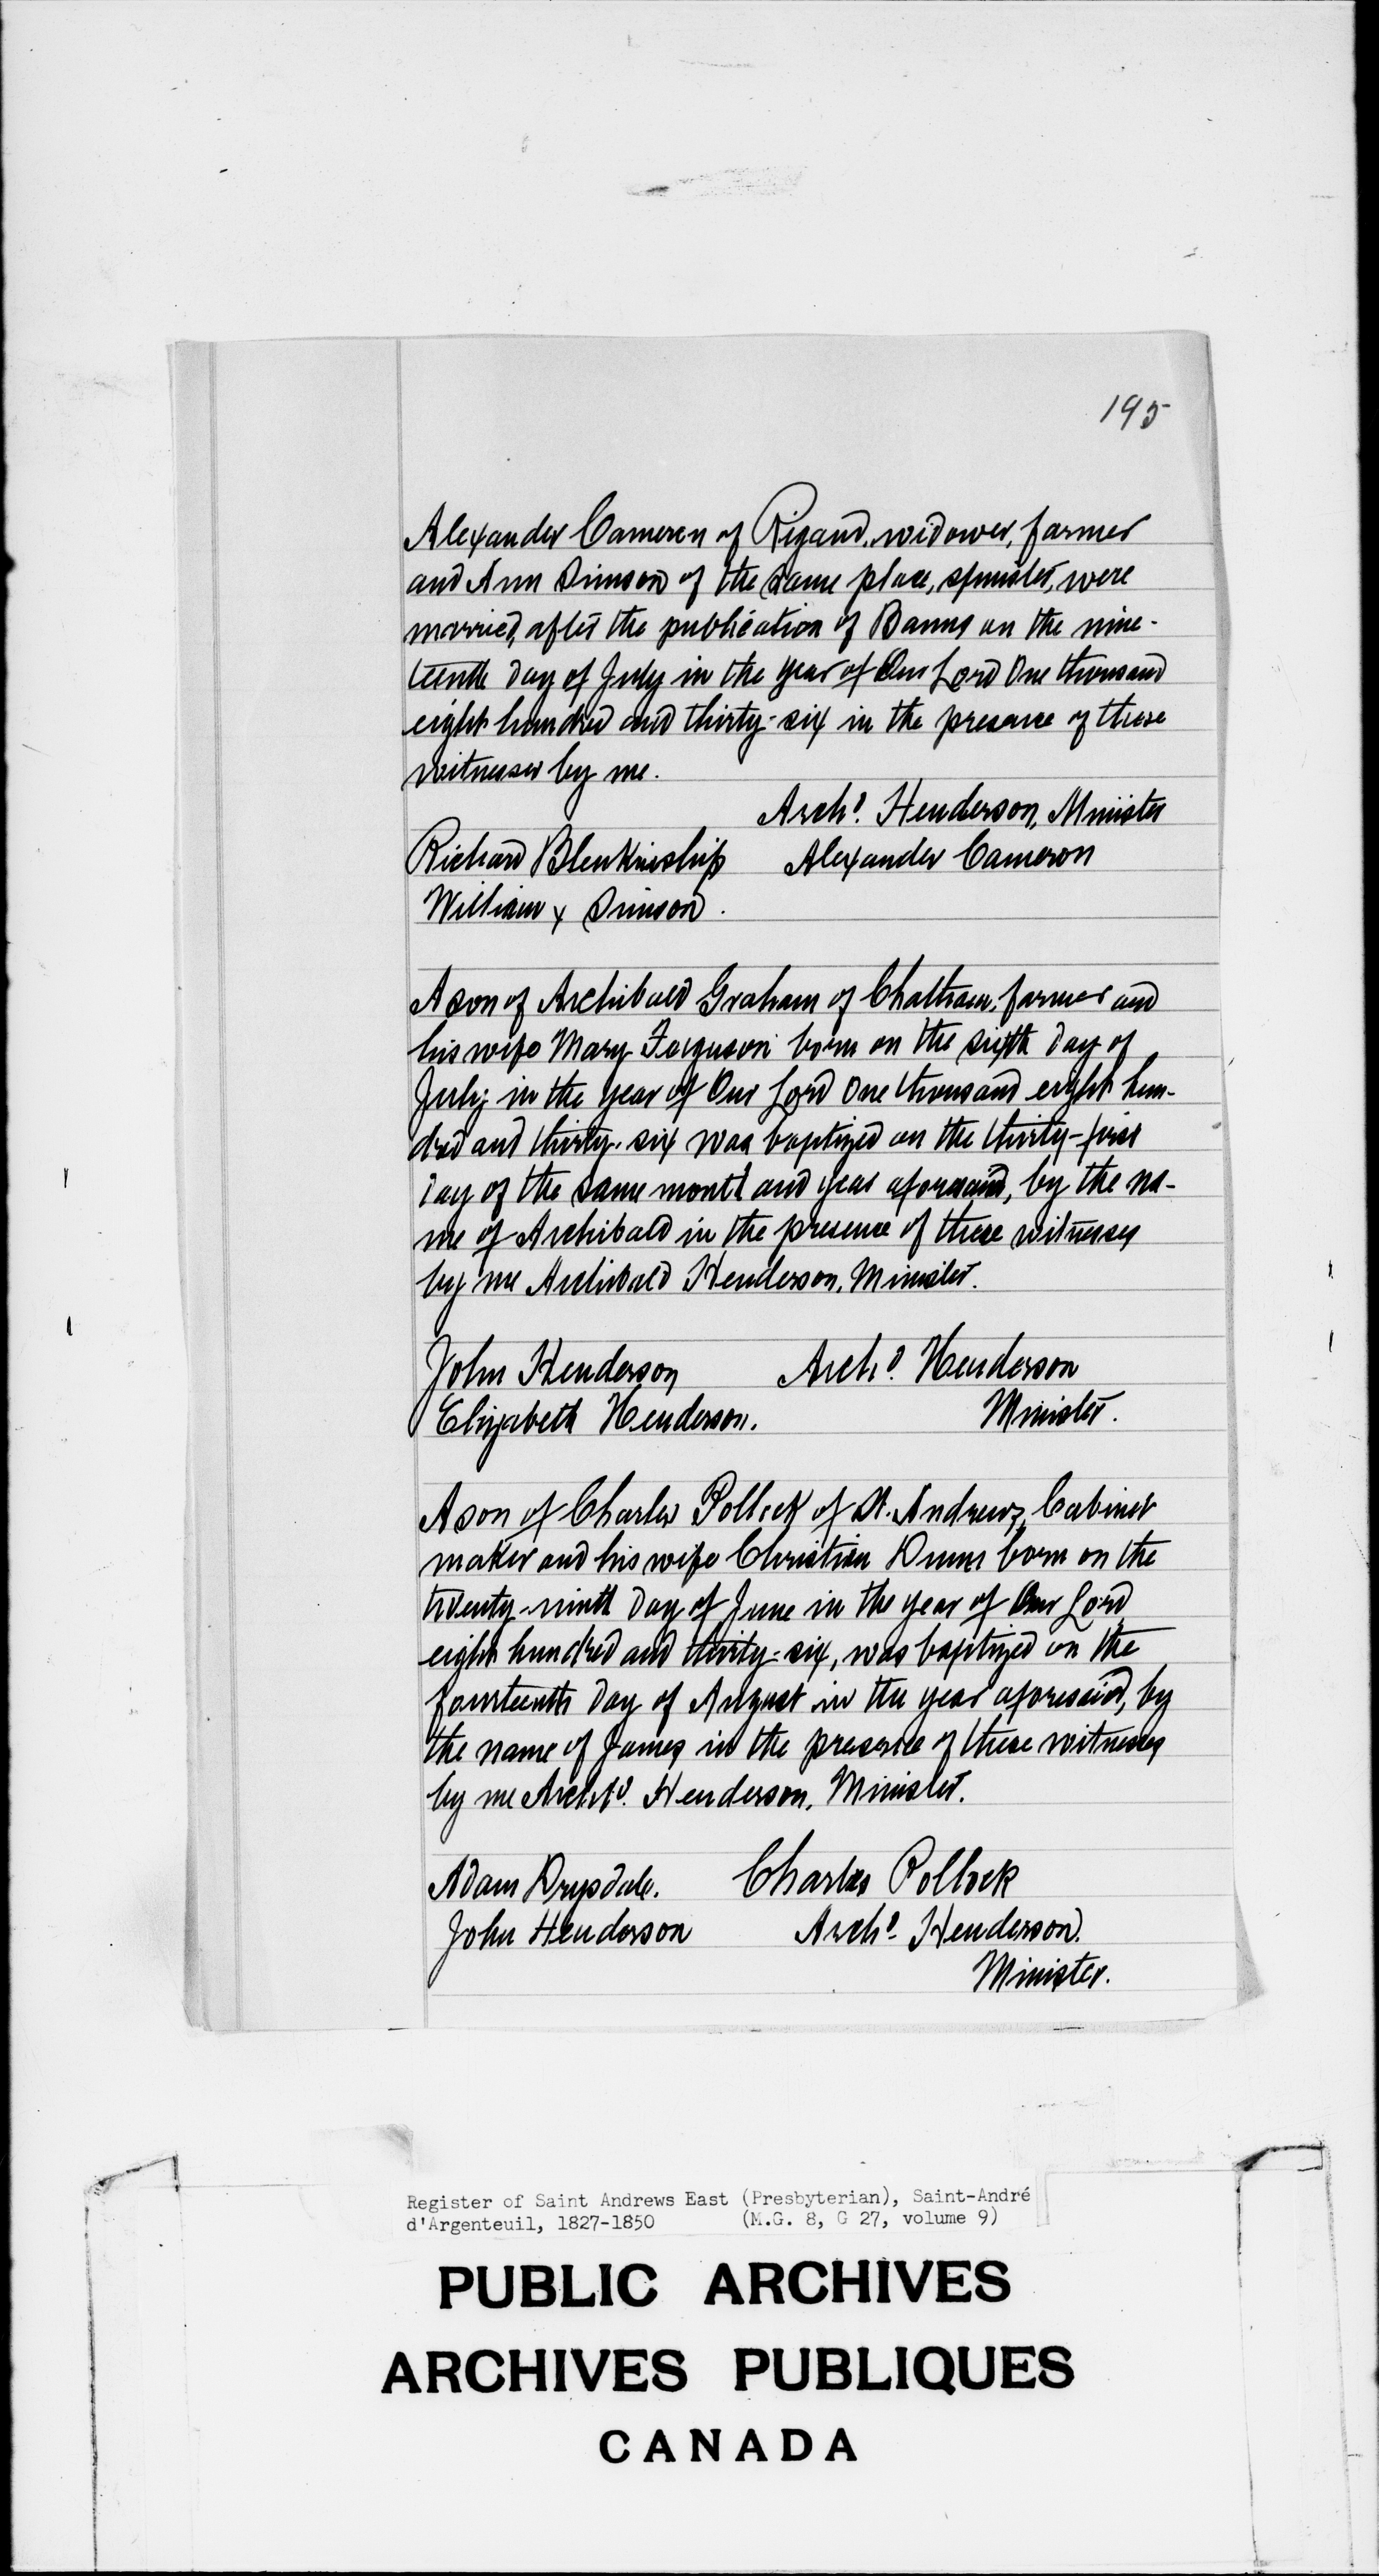 195
Alexander Cameron of Rigaud, widower, farmer
and Ann Simson of the same place, spinster, were
married, after the publication of Banns on the nine-
teenth day of July in the year of Our Lord One thousand
eight hundred and thirty-six in the presence of these
witnesses by me.
Archd. Henderson, Minister
Richard Blenkinship Alexander Cameron
William x Simson.
A son of Archibald Graham of Chatham, farmer and
his wife Mary Ferguson born on the sixth day of
July in the year of Our Lord One thousand eight hun-
dred and thirty-six was baptized on the thirty-first
day of the same month and year aforesaid, by the na-
me of Archibald in the presence of these witnesses
by me Archibald Henderson, Minister.
John Henderson Archd. Henderson
Elizabeth Henderson. Minister.
A son of Charles Pollock of St. Andrews, Cabinet
maker and his wife Christian Dunn born on the
twenty-ninth day of June in the year of Our Lord
eight hundred and thirty-six, was baptized on the
fourteenth day of August in the year aforesaid, by
the name of James in the presence of these witnesses
by me Archd. Henderson, Minister.
Adam Drysdale. Charles Pollock
John Henderson Archd. Henderson.
Minister.
Register of Saint Andrews East (Presbyterian), Saint-André
d'Argenteuil, 1827-1850 (M.G. 8, G 27, volume 9)
PUBLIC ARCHIVES
ARCHIVES PUBLIQUES
CANADA